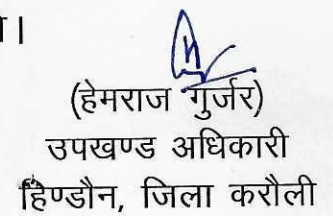 ।
(हेमराज गुर्जर)
उपखण्ड अधिकारी
हिण्डौन, जिला करौली